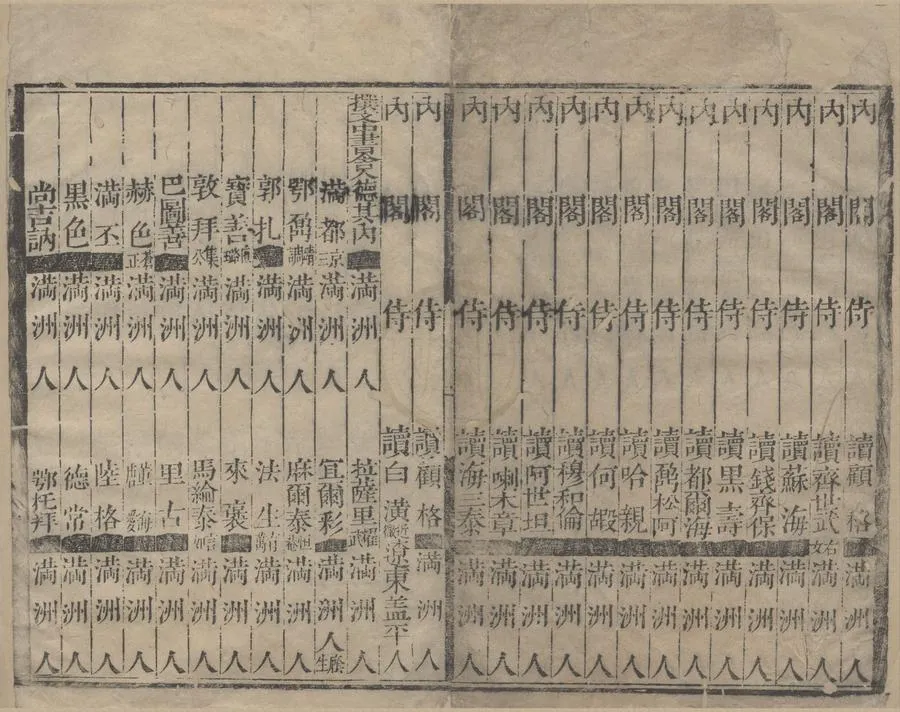 內閣侍讀顧格滿洲人
內閣侍讀齊世武右文滿洲人
內閣侍讀蘇海滿洲人
內閣侍讀錢齊保滿洲人
內閣侍讀黑壽滿洲人
內閣侍讀都爾海滿洲人
內閣侍讀鄂松阿滿洲人
內閣侍讀哈親滿洲人
內閣侍讀何緞滿洲人
內閣侍讀穆和倫滿洲人
內閣侍讀阿世坦滿洲人
內閣侍讀喇木章滿洲人
內閣侍讀海三泰滿洲人
內閣侍讀顧格滿洲人
內閣侍讀白潢近微遼東蓋平人
撰文中書舍人德其內滿洲人 拉薩里耀武滿洲人
滿都京三滿洲人 宜爾彩滿洲人廕生
鄂鼐滿洲人 麻爾泰滿洲人
郭扎滿洲人 法生滿洲人
寶善滿洲人 來襄滿洲人
敦拜集公滿洲人 馬綸泰信如滿洲人
巴圖善滿洲人 里古滿洲人
赫色蒼正滿洲人 海滿洲人
滿丕滿洲人 陸格滿洲人
黑色滿洲人 德常滿洲人
尚吉訥滿洲人 鄂托拜滿洲人